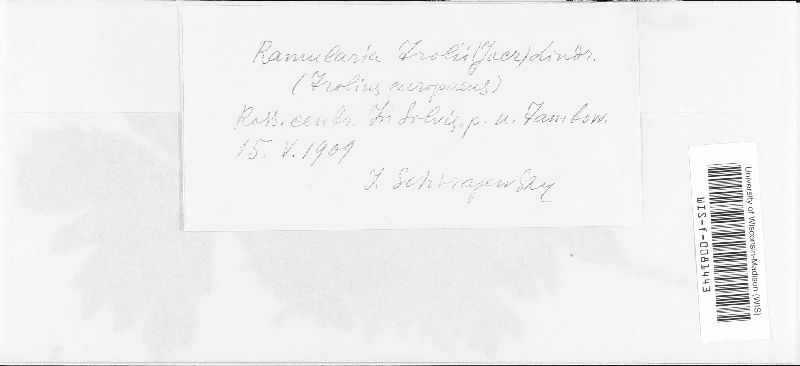 Ramularia Trolii (Jacz) Lindr.
(Trolius europaeus)
Ross. centr. In Solvis p. u. Tambow.
15. V. 1909
I. Schirajewsky
University of Wisconsin-Madison (WIS)
WIS-f-0081443